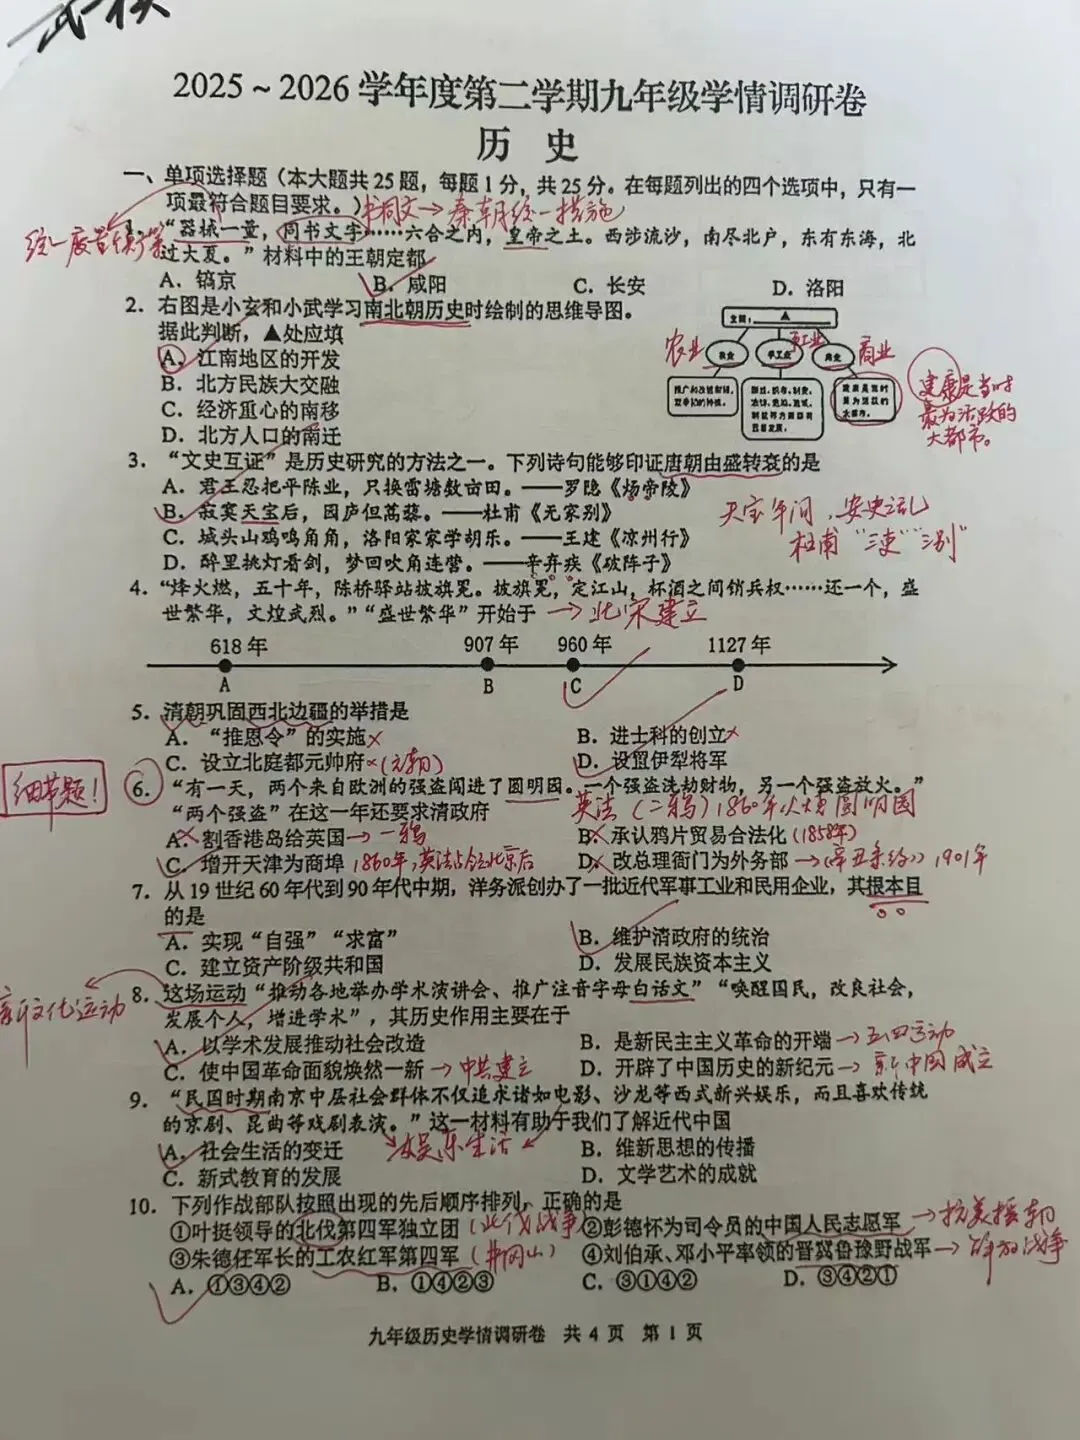 2025～2026学年度第二学期九年级学情调研卷
历 史
一、单项选择题（本大题共25题，每题1分，共25分。在每题列出的四个选项中，只有一
项最符合题目要求。）
书同文→秦朝统一措施
统一度量衡
1. “器械一量，同书文字……六合之内，皇帝之土。西涉流沙，南尽北户，东有东海，北
过大夏。”材料中的王朝定都
A．镐京 B．咸阳 C．长安 D．洛阳
2. 右图是小玄和小武学习南北朝历史时绘制的思维导图。
据此判断，▲处应填
A．江南地区的开发
B．北方民族大交融
C．经济重心的南移
D．北方人口的南迁
主题：▲
农业 手工业 商业
农业 手工业 商业
建康是当时
最为活跃的
大都市。
建康是当时
最为活跃的
大都市。
3. “文史互证”是历史研究的方法之一。下列诗句能够印证唐朝由盛转衰的是
A．君王忍把平陈业，只换雷塘数亩田。——罗隐《炀帝陵》
B．寂寞天宝后，园庐但蒿藜。——杜甫《无家别》
C．城头山鸡鸣角角，洛阳家家学胡乐。——王建《凉州行》
D．醉里挑灯看剑，梦回吹角连营。——辛弃疾《破阵子》
天宝年间，安史之乱
杜甫“三吏”“三别”
4. “烽火燃，五十年，陈桥驿站披旗冕。披旗冕，定江山，杯酒之间销兵权……还一个，盛
世繁华，文煌武烈。”“盛世繁华”开始于 →北宋建立
618年 907年 960年 1127年
A B C D
5. 清朝巩固西北边疆的举措是
A．“推恩令”的实施× B．进士科的创立×
C．设立北庭都元帅府×（元朝） D．设置伊犁将军
细节题！
6. “有一天，两个来自欧洲的强盗闯进了圆明园。一个强盗洗劫财物，另一个强盗放火。”
“两个强盗”在这一年还要求清政府 英法（二鸦）1860年火烧圆明园
A．割香港岛给英国→一鸦 B．承认鸦片贸易合法化（1858年）
C．增开天津为商埠 1860年，英法占领北京后 D．改总理衙门为外务部→《辛丑条约》1901年
7. 从19世纪60年代到90年代中期，洋务派创办了一批近代军事工业和民用企业，其根本目
的是
A．实现“自强”“求富” B．维护清政府的统治
C．建立资产阶级共和国 D．发展民族资本主义
新文化运动
8. 这场运动“推动各地举办学术演讲会、推广注音字母白话文”“唤醒国民，改良社会，
发展个人，增进学术”，其历史作用主要在于
A．以学术发展推动社会改造 B．是新民主主义革命的开端→五四运动
C．使中国革命面貌焕然一新→中共建立 D．开辟了中国历史的新纪元→新中国成立
9. “民国时期南京中层社会群体不仅追求诸如电影、沙龙等西式新兴娱乐，而且喜欢传统
的京剧、昆曲等戏剧表演。”这一材料有助于我们了解近代中国
A．社会生活的变迁 →娱乐生活 B．维新思想的传播
C．新式教育的发展 D．文学艺术的成就
10. 下列作战部队按照出现的先后顺序排列，正确的是
①叶挺领导的北伐第四军独立团（北伐战争） ②彭德怀为司令员的中国人民志愿军→抗美援朝
③朱德任军长的工农红军第四军（井冈山） ④刘伯承、邓小平率领的晋冀鲁豫野战军→解放战争
A．①③④② B．①④②③ C．③①④② D．③④②①
九年级历史学情调研卷 共4页 第1页